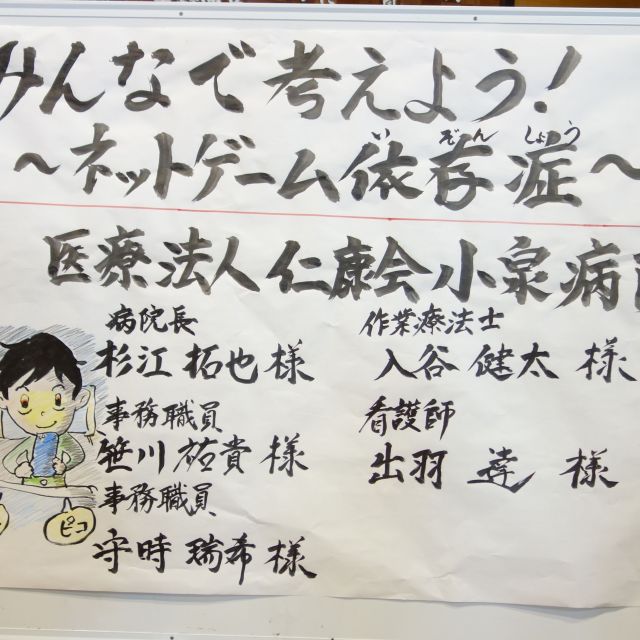 みんなで考えよう!
い ぞん しょう
～ネットゲーム依存症～
医療法人仁康会小泉病院
病院長
杉江 拓也 様
事務職員
笹川 祐貴 様
事務職員
守時 瑞希 様
作業療法士
入谷 健太 様
看護師
出羽 達 様
ピコ